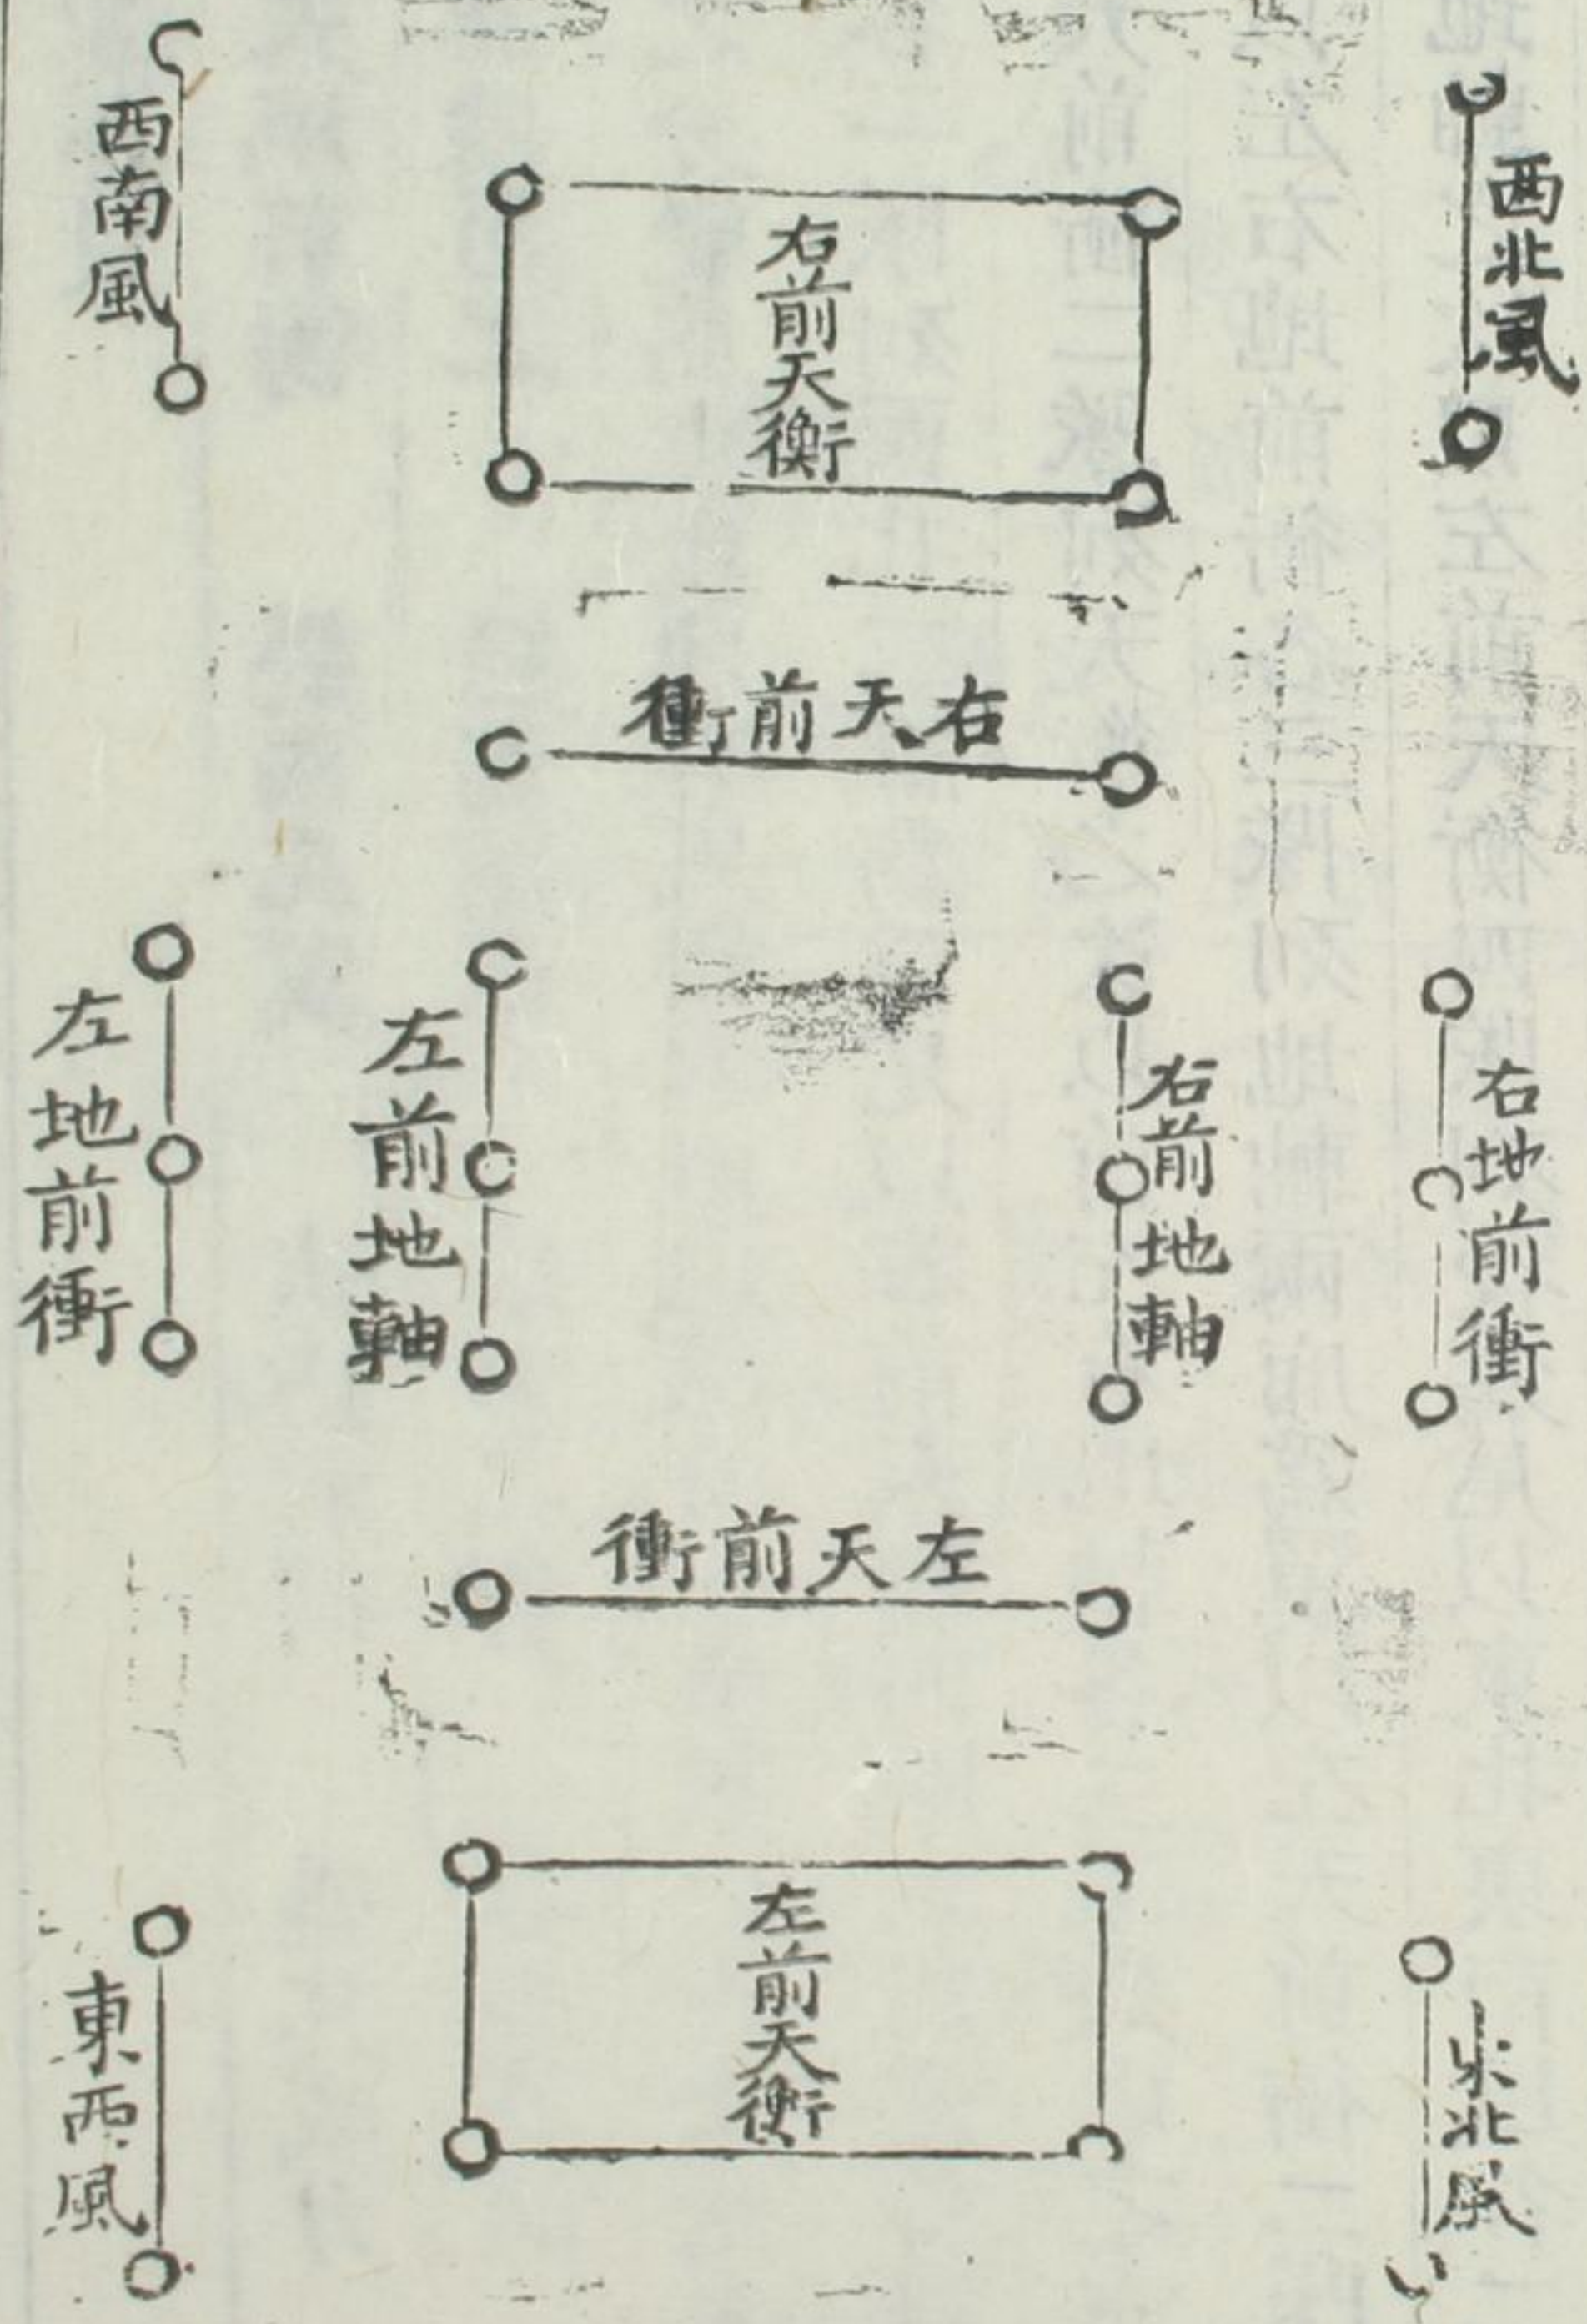 西北風
右前天衡
西南風
右天前衝
右地前衝
右前地軸
左前地軸
左地前衝
左天前衝
東北風
左前天衡
東西風